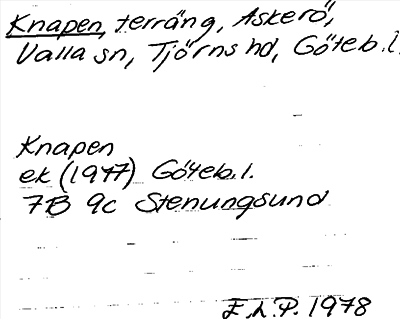 Knapen, terräng, Askerö,
Valla sn, Tjörns hd, Göteb. l.
Knapen
ek (1977) Göteb. l.
7B 9c Stenungsund
E.h.P. 1978